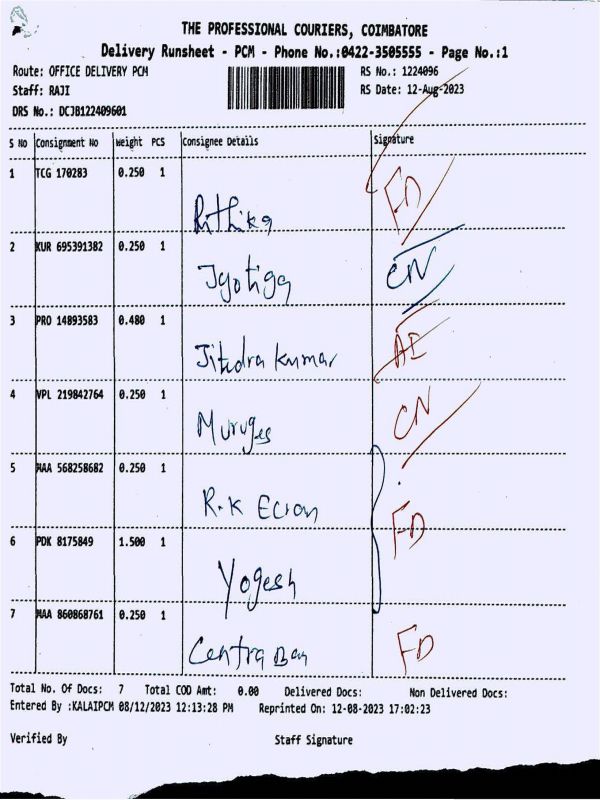 THE PROFESSIONAL COURIERS, COIMBATORE
Delivery Runsheet - PCM - Phone No.:0422-3505555 - Page No.:1
Route: OFFICE DELIVERY PCM RS No.: 1224096
Staff: RAJI RS Date: 12-Aug-2023
DRS No.: DCJB122409601
S NO Consignment No Weight PCS Consignee Details Signature
1 TCG 170283 0.250 1
Rithika FD
2 KUR 695391382 0.250 1
Jyotiga CN
3 PRO 14893583 0.480 1
Jitndra Kumar AE
4 VPL 219842764 0.250 1
Muruges CN
5 MAA 568258682 0.250 1
R.K FD
6 PDK 8175849 1.500 1
Yogesh
7 MAA 860868761 0.250 1
Centra Ban FD
Total No. Of Docs: 7 Total COD Amt: 0.00 Delivered Docs: Non Delivered Docs:
Entered By :KALAIPCM 08/12/2023 12:13:28 PM Reprinted On: 12-08-2023 17:02:23
Verified By Staff Signature